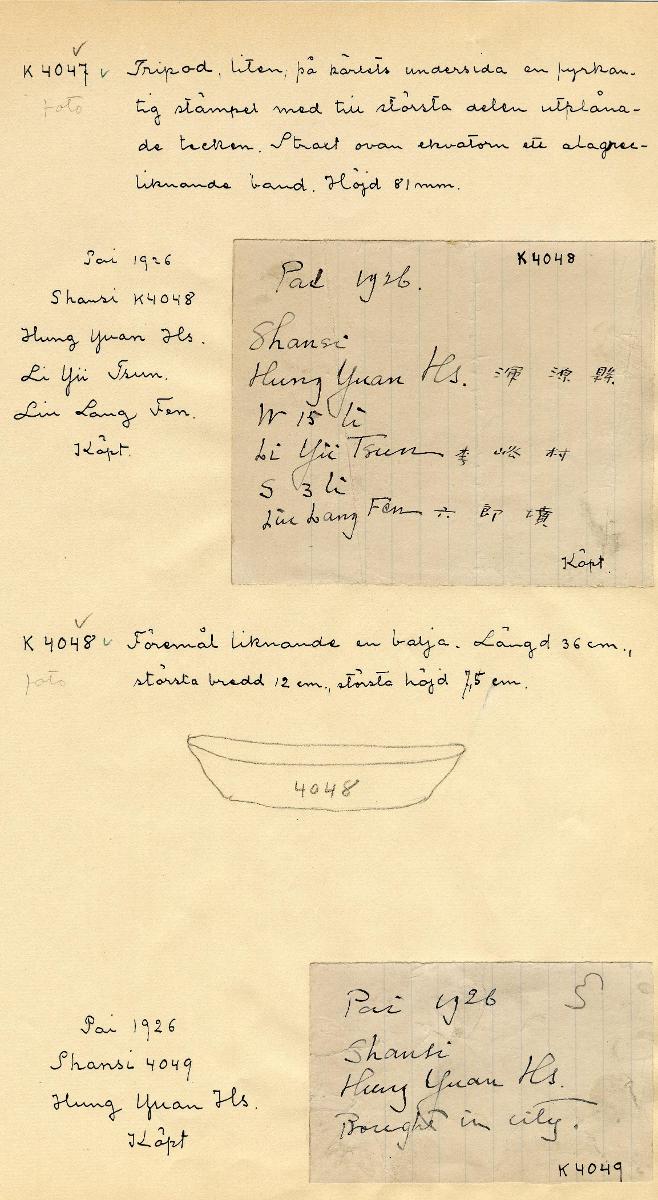 K 4047 Tripod, liten, på kärlets undersida en fyrkan-
foto tig stämpel med till största delen utplåna-
de tecken. Straxt ovan ekvatorn ett
liknande band. Höjd 81 mm.
Pai 1926
Shansi K4048
Hung Yuan Hs.
Li Yü Tsun.
Liu Lang Fen.
Köpt.
K4048
Pai 1926.
Shansi
Hung Yuan Hs. 渾 源 縣
W 15 li
Li Yü Tsun 李 峪 村
S 3 li
Liu Lang Fen 六 郎 墳
Köpt.
K 4048 Föremål liknande en balja. Längd 36 cm.,
foto största bredd 12 cm., största höjd 7,5 cm.
4048
Pai 1926
Shansi 4049
Hung Yuan Hs.
Köpt
Pai 1926
Shansi
Hung Yuan Hs.
Bought in city.
K4049